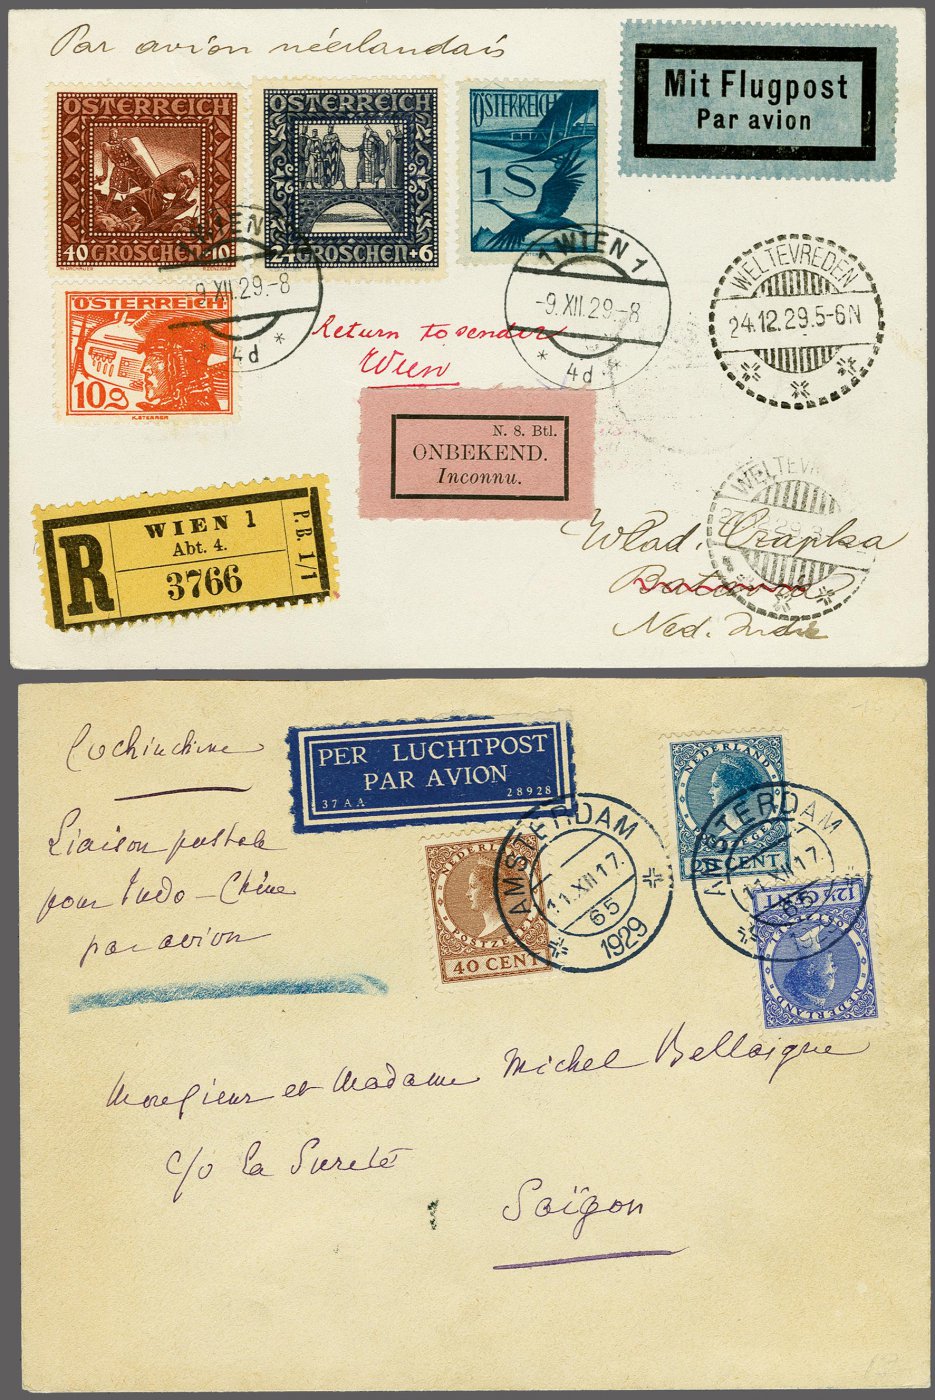 Par avion néerlandais
Mit Flugpost
Par avion
ÖSTERREICH
40 GROSCHEN +10
ÖSTERREICH
24 GROSCHEN +6
ÖSTERREICH
1S
ÖSTERREICH
10g
1 WIEN 1
-9.XII.29.-8
* 4d *
1 WIEN 1
-9.XII.29.-8
* 4d *
WELTEVREDEN
24.12.29.5-6N
Return to sender
Wien
N. 8. Btl.
ONBEKEND.
Inconnu.
R
WIEN 1
Abt. 4.
3766
P.B. 1/1
WELTEVR
Wlad. Czapka
Batavia
Ned. Indië
Cochinchine
PER LUCHTPOST
PAR AVION
37 A A 28928
Liaison postale
pour Indo-Chine
par avion
NEDERLAND
POSTZEGEL
40 CENT
NEDERLAND
CENT
12½ CT
NEDERLAND
AMSTERDAM
11.XII.17.
65
1929
AMSTERDAM
11.XII.17.
65
1929
Monsieur et Madame Michel Bellaigue
c/o La Sureté
Saïgon